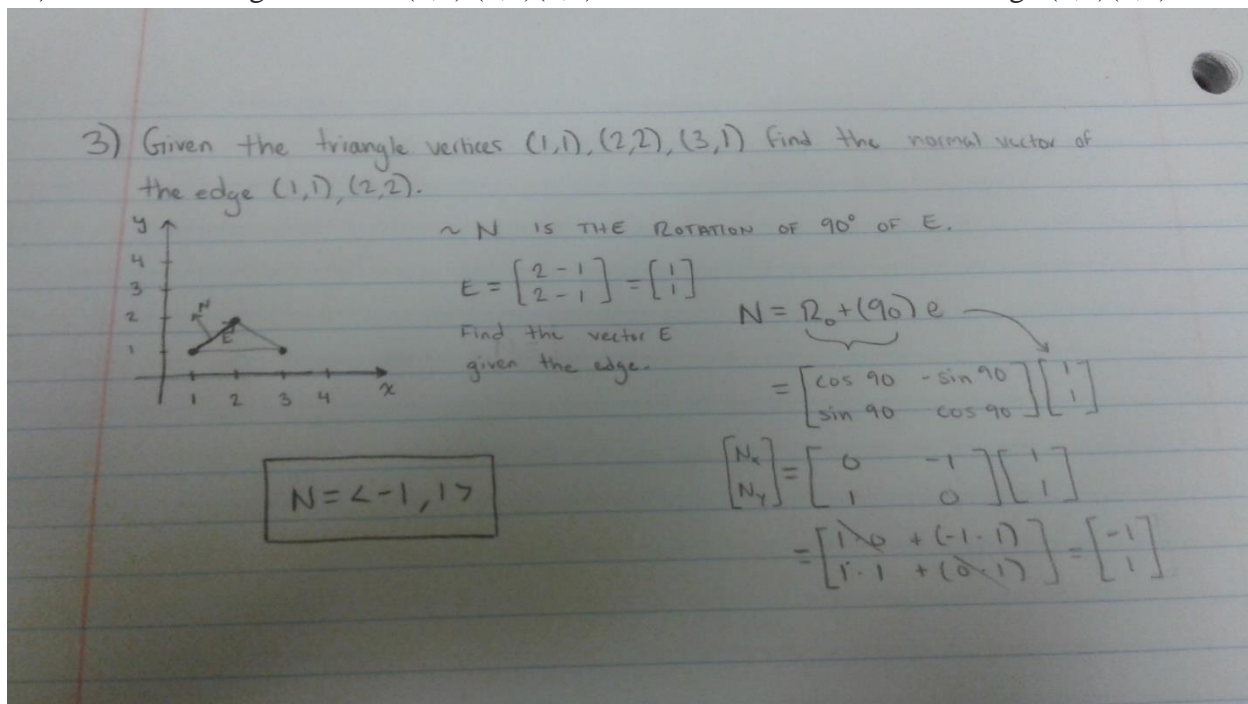 3) Given the triangle vertices (1,1), (2,2), (3,1) find the normal vector of
the edge (1,1), (2,2).
y
4
3
2
1
1 2 3 4 x
N
E
~ N IS THE ROTATION OF 90° OF E.
E = [2 - 1
2 - 1] = [1
1]
Find the vector E
given the edge.
N = R₀+(90) e
= [cos 90 -sin 90
sin 90 cos 90] [1
1]
[Nx
Ny] = [0 -1
1 0] [1
1]
= [1·0 + (-1·1)
1·1 + (0·1)] = [-1
1]
N = <-1, 1>